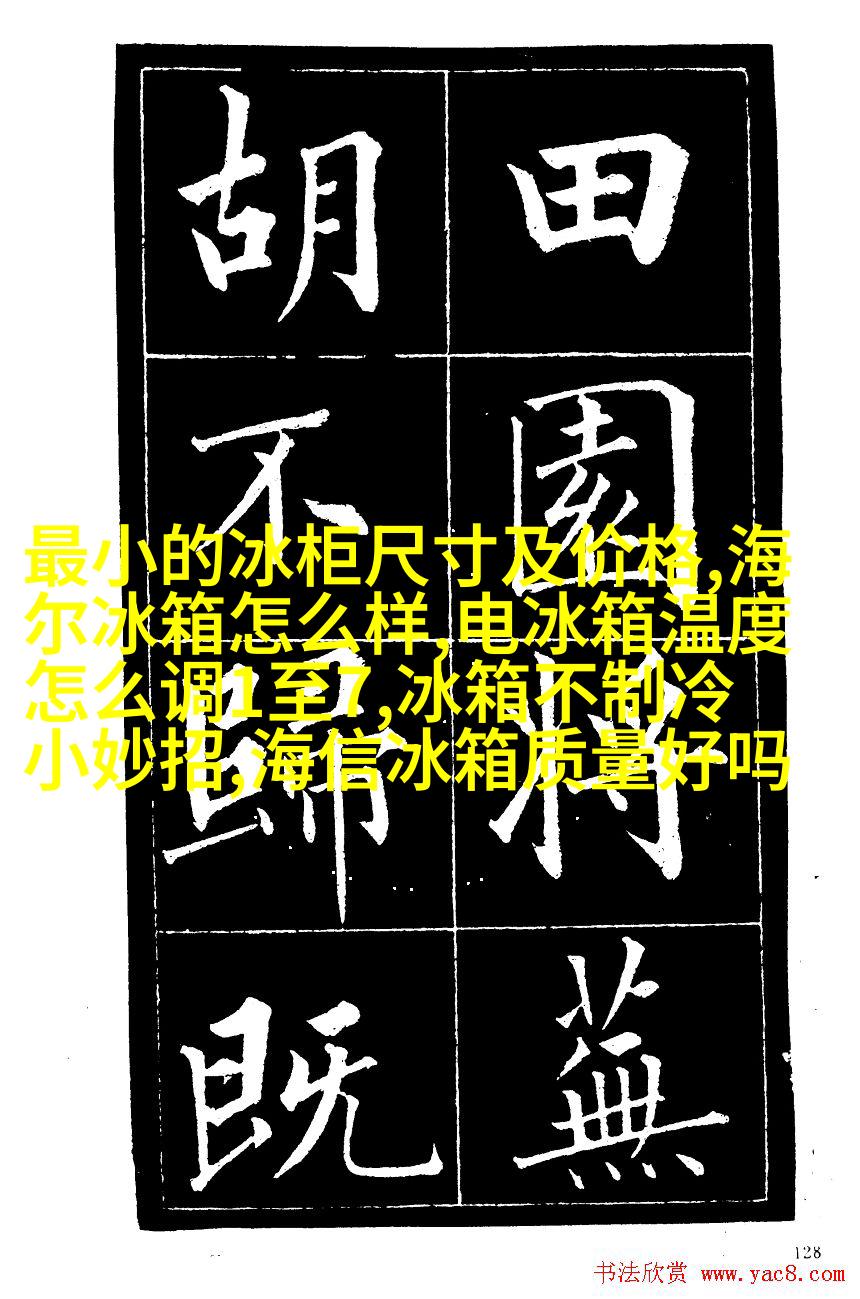 田園將蕪
胡不歸既
最小的冰柜尺寸及价格,海
尔冰箱怎么样,电冰箱温度
怎么调1至7,冰箱不制冷
小妙招,海信冰箱质量好吗
128
书法欣赏 www.yac8.com